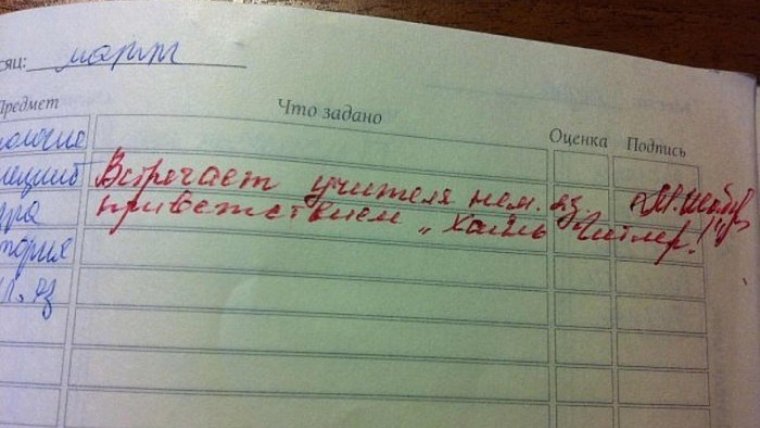 сяц: март
Предмет Что задано Оценка Подпись
Встречает учителя нем. яз.
приветствием „Хайль Гитлер!"
тория